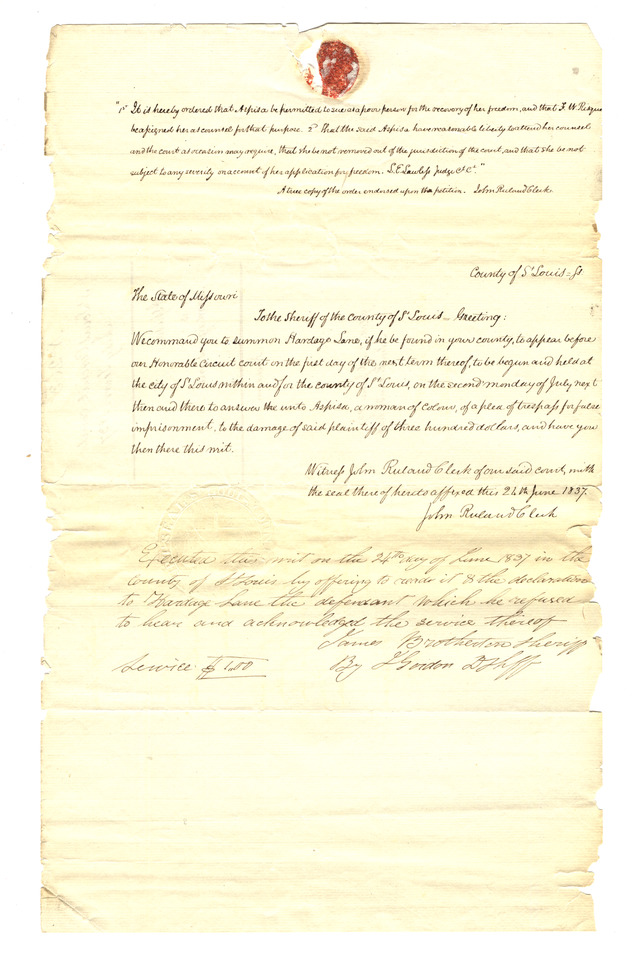 "1st It is hereby ordered that Aspisa be permitted to sue as a poor person for the recovery of her freedom, and that F. W. Risque
be assigned her as counsel for that purpose. 2d That the said Aspisa have reasonable liberty to attend her counsel
and the court as occasion may require, that she be not removed out of the jurisdiction of the court, and that she be not
subject to any severity on account of her application for freedom. L. E. Lawless Judge &c."
A true copy of the order endorsed upon the petition. John Ruland Clerk
County of St Louis = Ss
The State of Missouri
To the Sheriff of the County of St Louis — Greeting:
We command you to summon Hardage Lane, if he be found in your county, to appear before
our Honorable Circuit court on the first day of the next term thereof, to be begun and held at
the city of St Louis within and for the county of St Louis, on the second monday of July next
then and there to answer the unto Aspisa, a woman of colour, of a plea of trespass for false
imprisonment, to the damage of said plaintiff of three hundred dollars, and have you
then there this writ.
Witness John Ruland Clerk of our said court, with
the seal thereof hereto affixed this 24th June 1837.
John Ruland Clerk
Executed this writ on the 24th day of June 1837 in the
County of St Louis by offering to reade it & the declaration
to Hardage Lane the defendant which he refused
to hear and acknowledged the service thereof
James Brotherton Sheriff
Service $1.00 By J Gordon D Shff